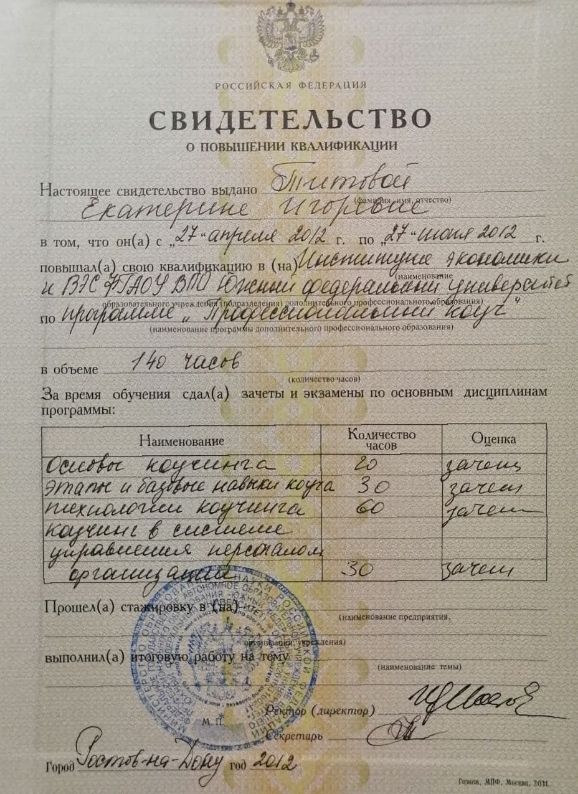 РОССИЙСКАЯ ФЕДЕРАЦИЯ
СВИДЕТЕЛЬСТВО
О ПОВЫШЕНИИ КВАЛИФИКАЦИИ
Настоящее свидетельство выдано Титовой
(фамилия, имя, отчество)
Екатерине Игоревне
в том, что он(а) с „27“ апреля 2012 г. по „27“ июня 2012 г.
повышал(а) свою квалификацию в (на) Институте экономики
(наименование
и ВЭС ФГАОУ ВПО Южный федеральный университет
образовательного учреждения (подразделения) дополнительного профессионального образования)
по программе „Профессиональный коуч“
(наименование программы дополнительного профессионального образования)
в объеме 140 часов
(количество часов)
За время обучения сдал(а) зачеты и экзамены по основным дисциплинам
программы:
Наименование Количество часов Оценка
Основы коучинга 20 зачет
Этапы и базовые навыки коуча 30 зачет
технологии коучинга 60 зачет
коучинг в системе
управления персоналом
организации 30 зачет
Прошел(а) стажировку в (на)
(наименование предприятия,
организации, учреждения)
выполнил(а) итоговую работу на тему
(наименование темы)
М. П.
Ректор (директор)
Секретарь
Город Ростов-на-Дону год 2012
Гознак, МПФ, Москва, 2011.